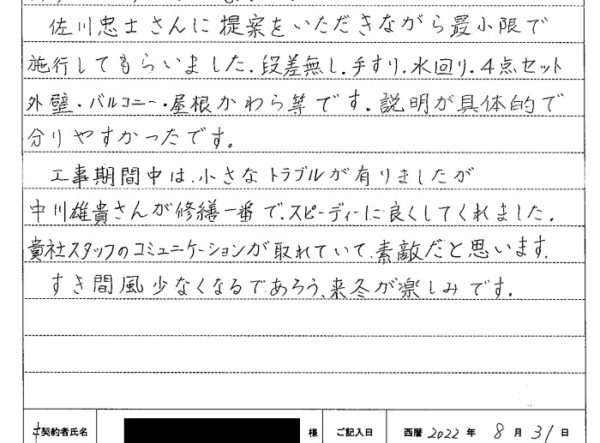 佐川忠士さんに提案をいただきながら最小限で
施行してもらいました.段差無し.手すり.水回り.4点セット
外壁・バルコニー・屋根かわら等です.説明が具体的で
分りやすかったです。
工事期間中は.小さなトラブルが有りましたが
中川雄貴さんが修繕一番で.スピーディーに良くしてくれました.
貴社スタッフのコミュニケーションが取れていて.素敵だと思います.
すき間風少なくなるであろう、来冬が楽しみです.
ご契約者氏名 様 ご記入日 西暦 2022 年 8 月 31 日